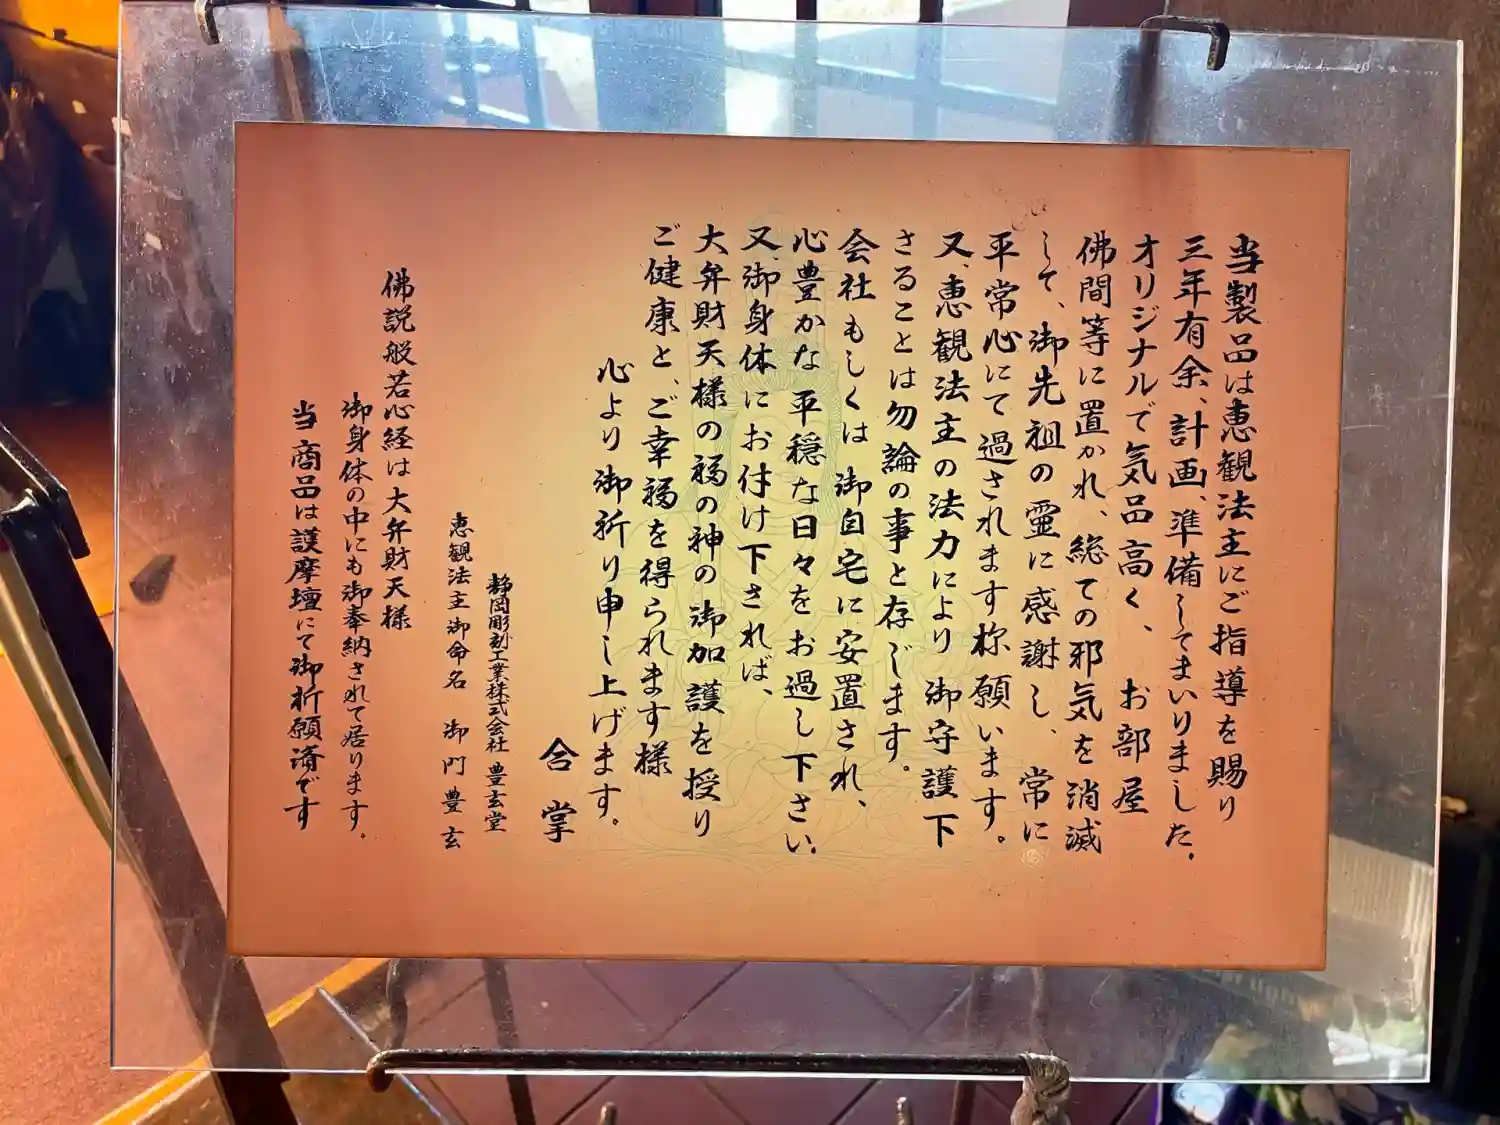 当製品は恵観法主にご指導を賜り
三年有余、計画、準備してまいりました。
オリジナルで気品高く、 お部屋
佛間等に置かれ、総ての邪気を消滅
して、御先祖の霊に感謝し、 常に
平常心にて過されます様願います。
又、恵観法主の法力により 御守護下
さることは勿論の事と存じます。
会社もしくは 御自宅に安置され、
心豊かな 平穏な日々をお過し下さい。
又、御身体にお付け下されば、
大弁財天様の福の神の御加護を授り
ご健康と、ご幸福を得られます様
心より御祈り申し上げます。
合掌
静岡彫刻工業株式会社 豊玄堂
恵観法主御命名 御門豊玄
佛説般若心経は大弁財天様
御身体の中にも御奉納されて居ります。
当商品は護摩壇にて御祈願済です